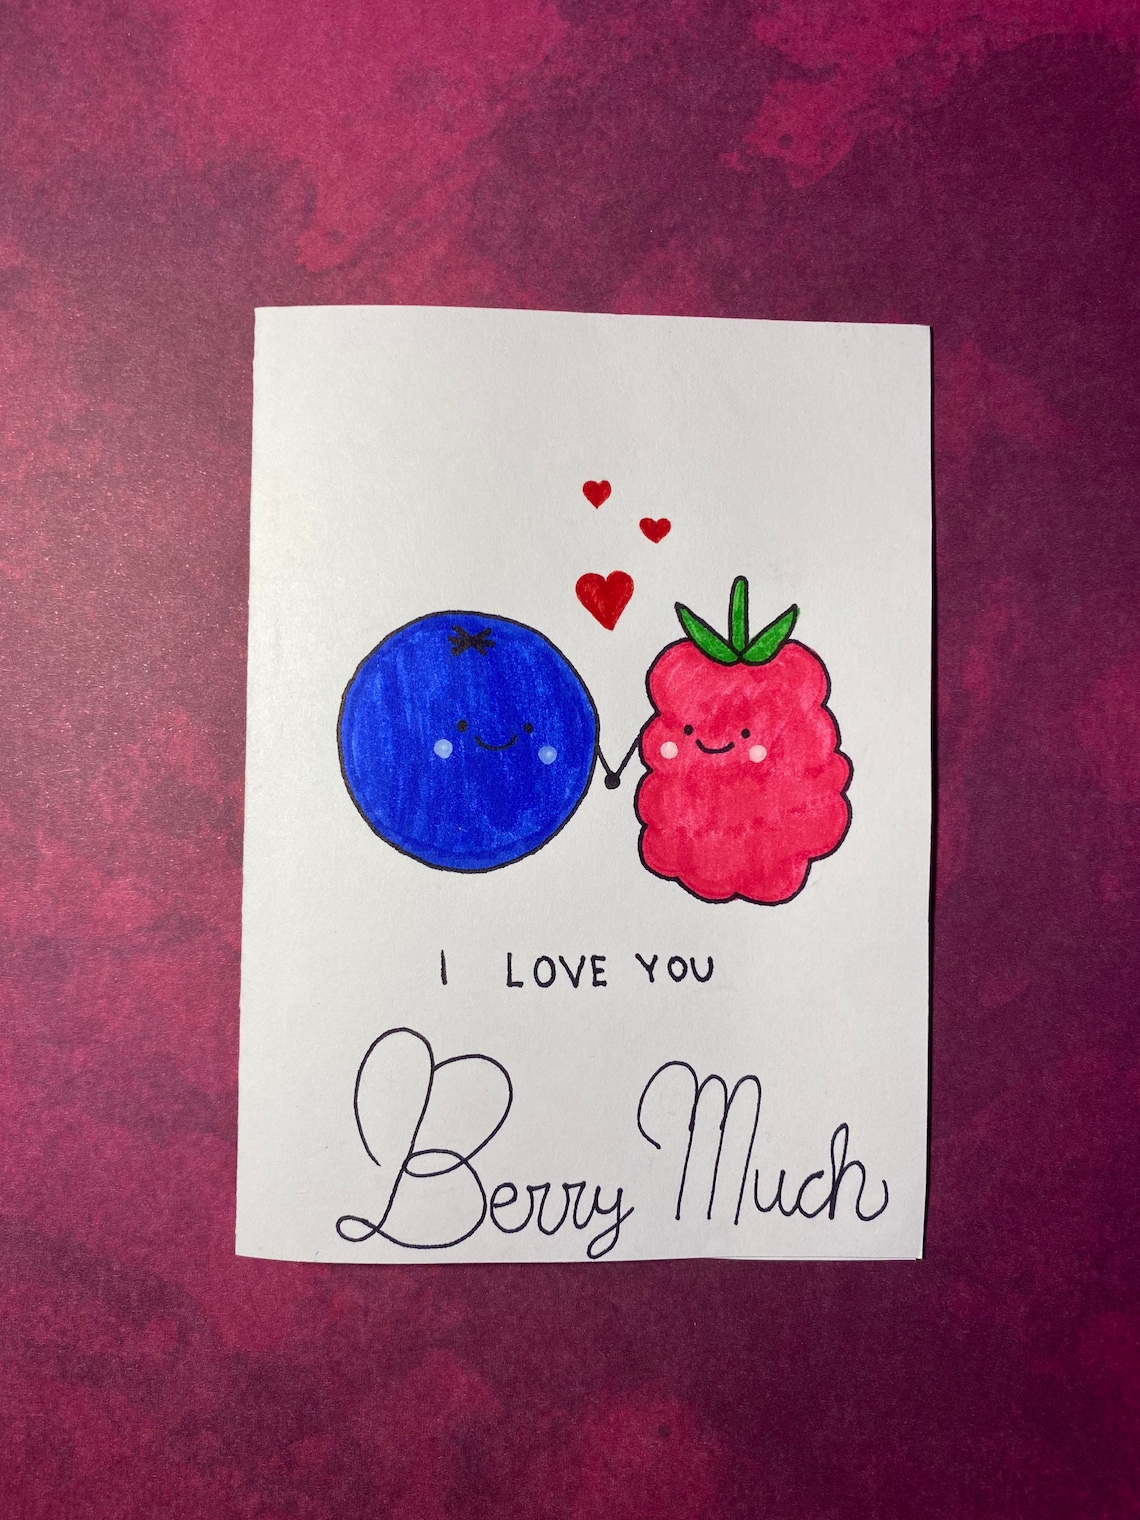 I LOVE YOU
Berry Much